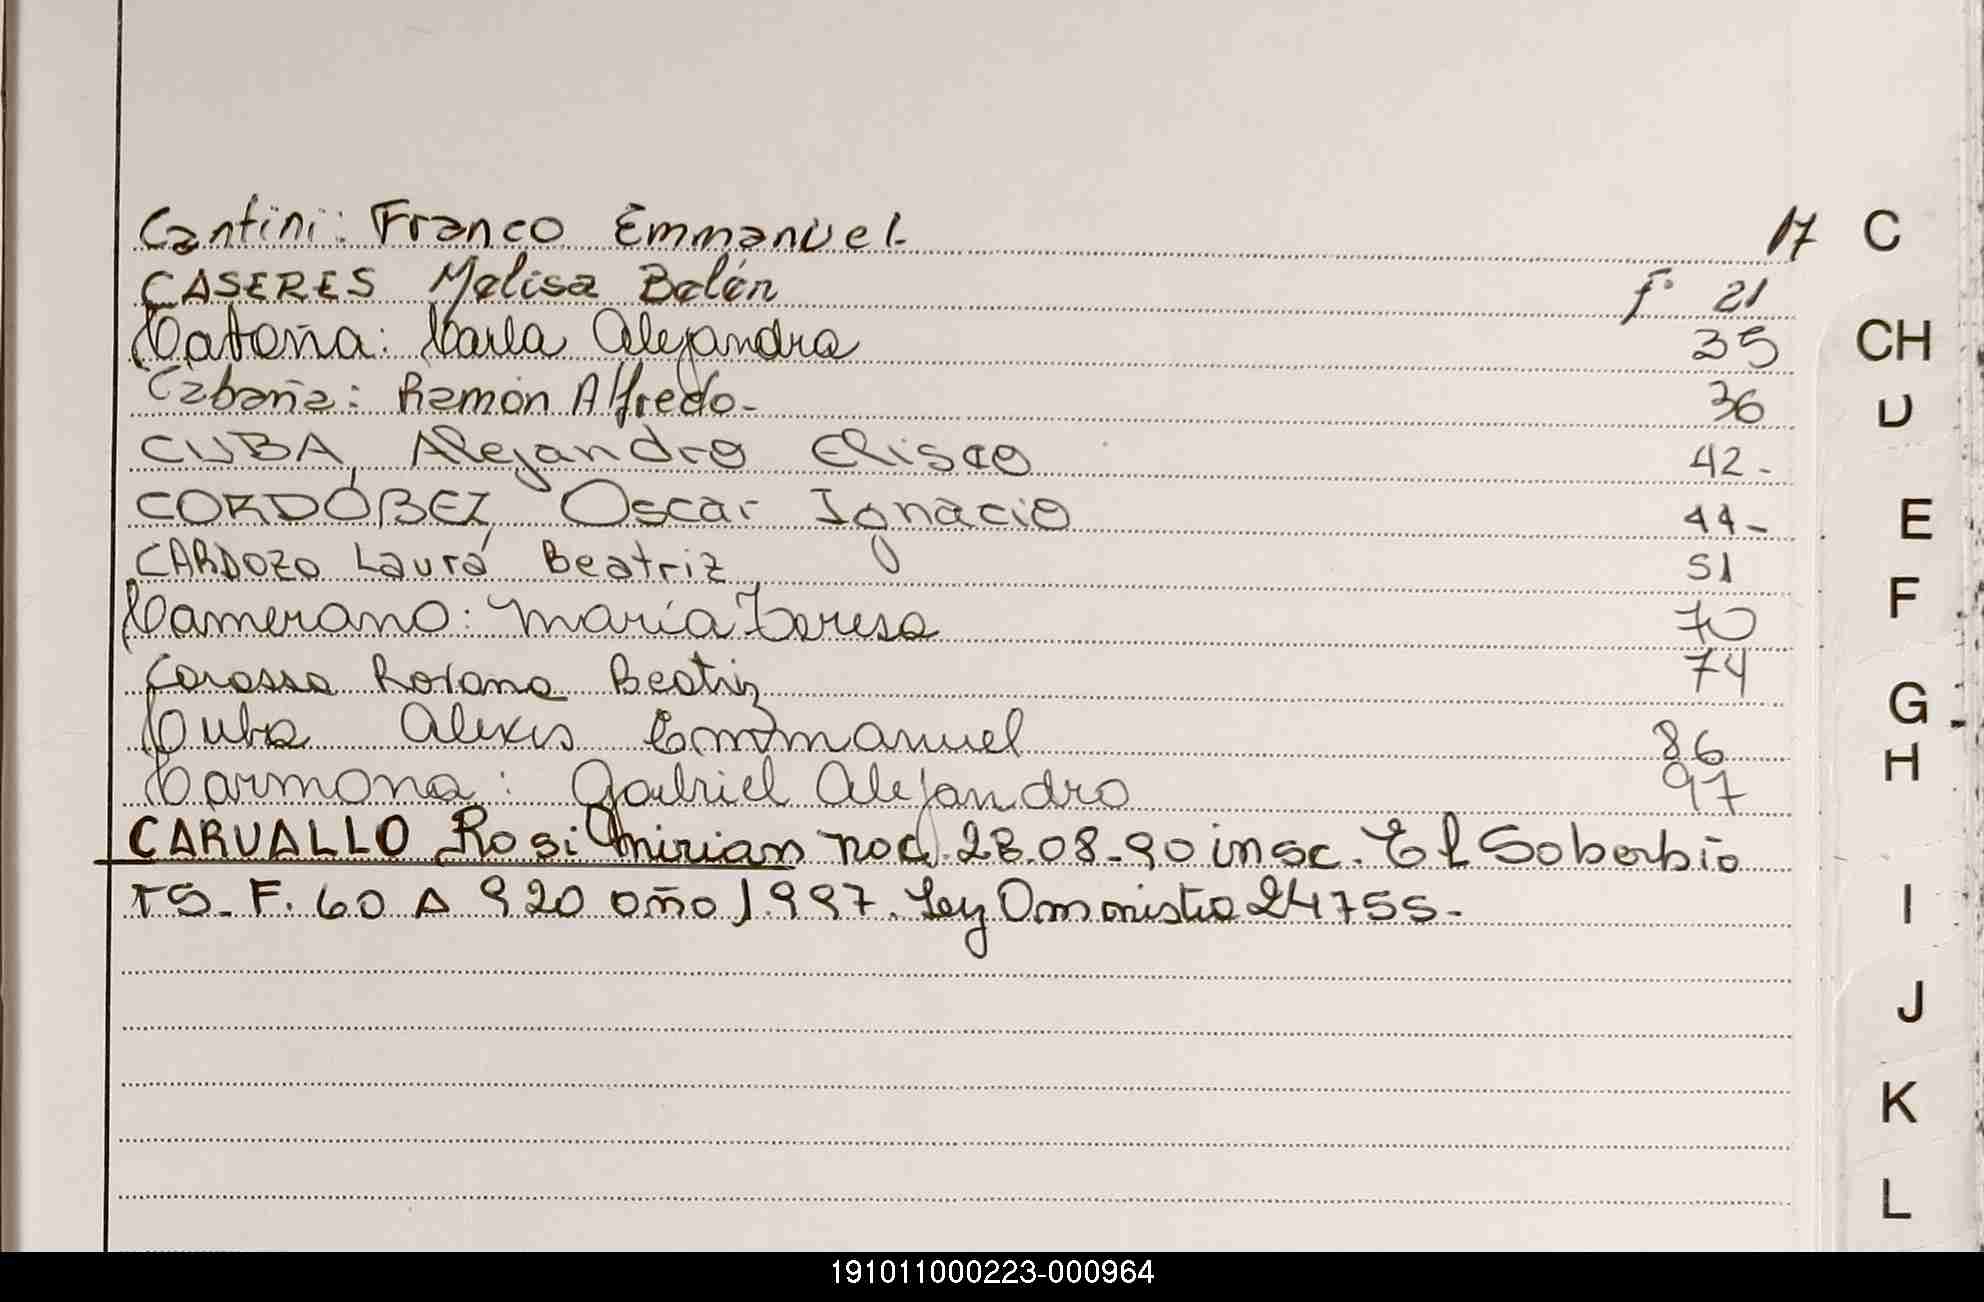 Cantini: Franco Emmanuel. 17
CASERES Melisa Belén fº 21
Cataña: Carla Alejandra 35
Cabaña: Ramón Alfredo- 36
CUBA, Alejandro Eliseo 42-
CORDÓBEZ, Oscar Ignacio 44-
CARDOZO Laura Beatriz 51
Camerano: María Teresa 70
Carossa Rosana Beatriz 74
Cuba Alexis Emmanuel 86
Carmona: Gabriel Alejandro 97
CARVALLO Rosi Mirian nac. 28.08.90 insc. El Soberbio
TS. F. 60 A 920 año 1997. Ley Ammistia 24755-
C
CH
D
E
F
G
H
I
J
K
L
191011000223-000964